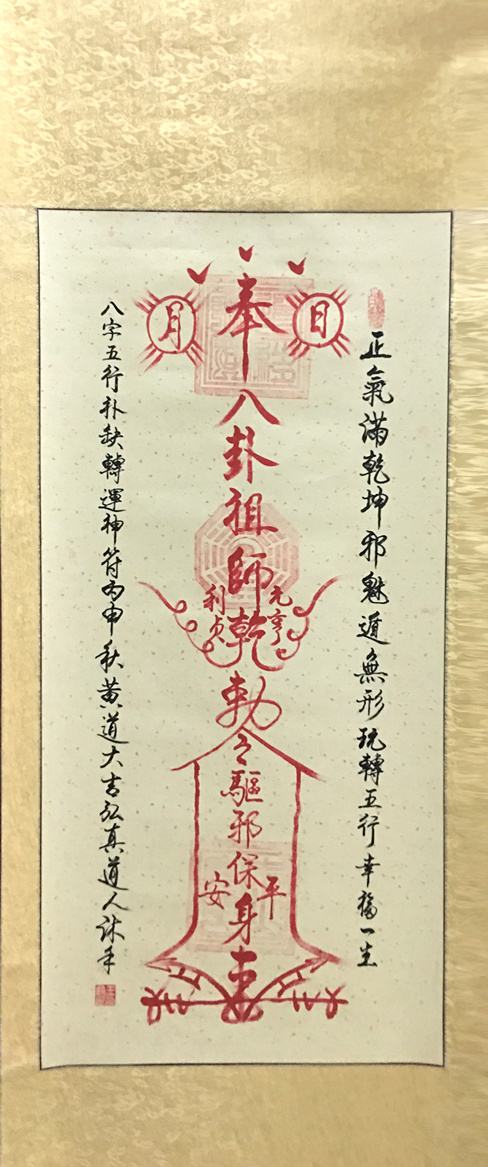 正氣滿乾坤邪魅遁無形玩轉五行幸福一生
日
月
奉八卦祖師乾勅令
元亨
利贞
驅邪保身
平
安
八字五行补缺轉運神符丙申秋黄道大吉弘真道人沐手